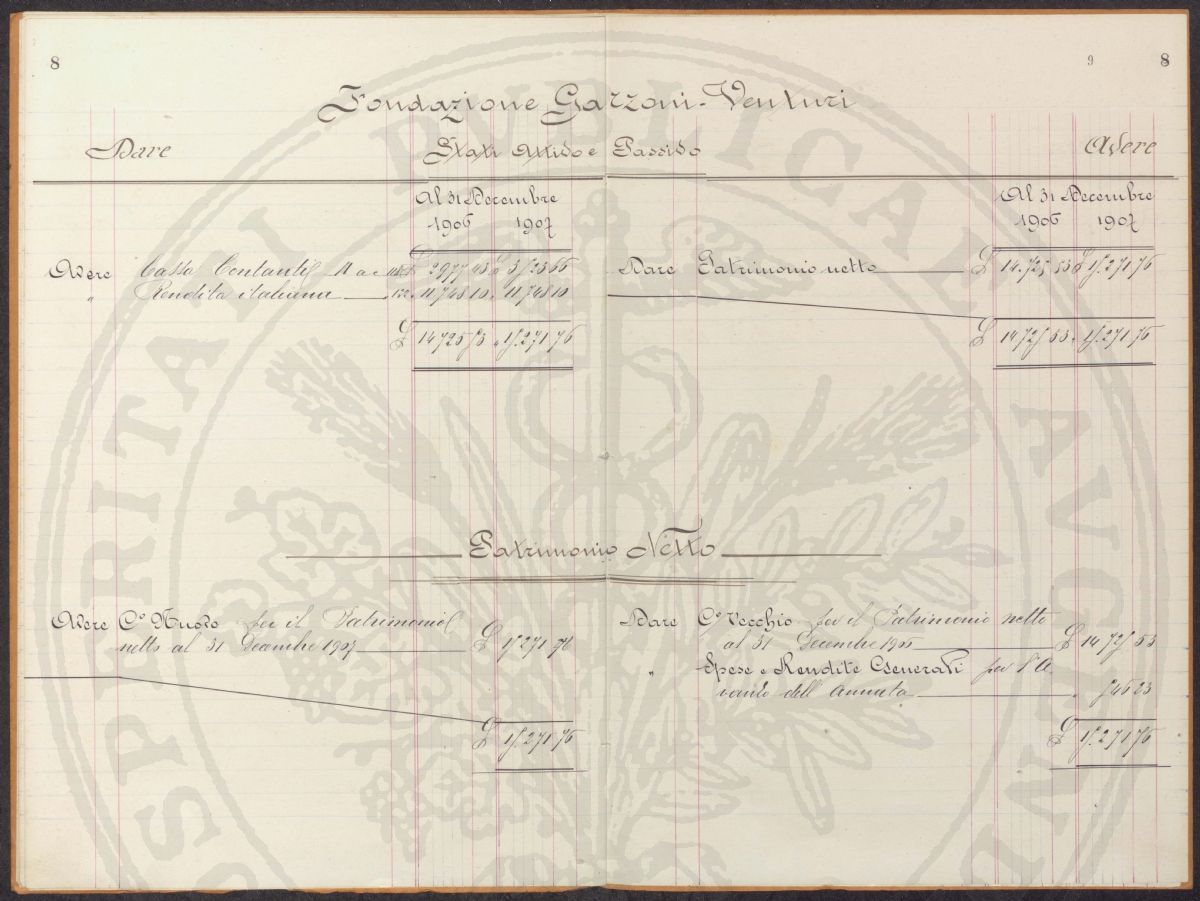 8
9 8
Fondazione Garzoni-Venturi
Dare Stati Attivo e Passivo Avere
Al 31 Decembre
1906 1907
Avere Cassa Contanti £ 2977 43 £ 3523 66
" Rendita italiana " 11748 10 " 11748 10
£ 14725 53 " 15.271 76
Al 31 Decembre
1906 1907
Dare Patrimonio netto £ 14.725 53 £ 15.271 76
£ 14725 53 " 15.271 76
Patrimonio Netto
Avere Cº Nuovo per il Patrimonio
netto al 31 Decembre 1907 £ 15.271 76
£ 15.271 76
Dare Cº Vecchio per il Patrimonio netto
al 31 Decembre 1906 £ 14725 53
" Spese e Rendite Generali per l'A
vanzo dell'Annata " 546 23
£ 15.271 76
PVBLICAE AVGENDAE
SPERITATI